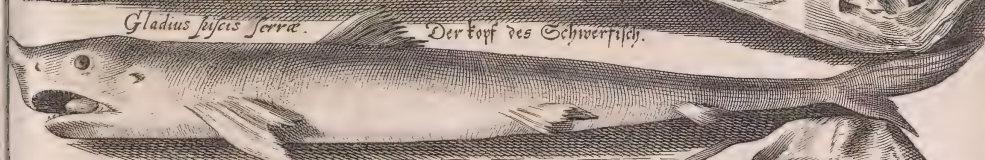 Gladius piſcis ſerræ.
Der kopf des Schwerfiſch.